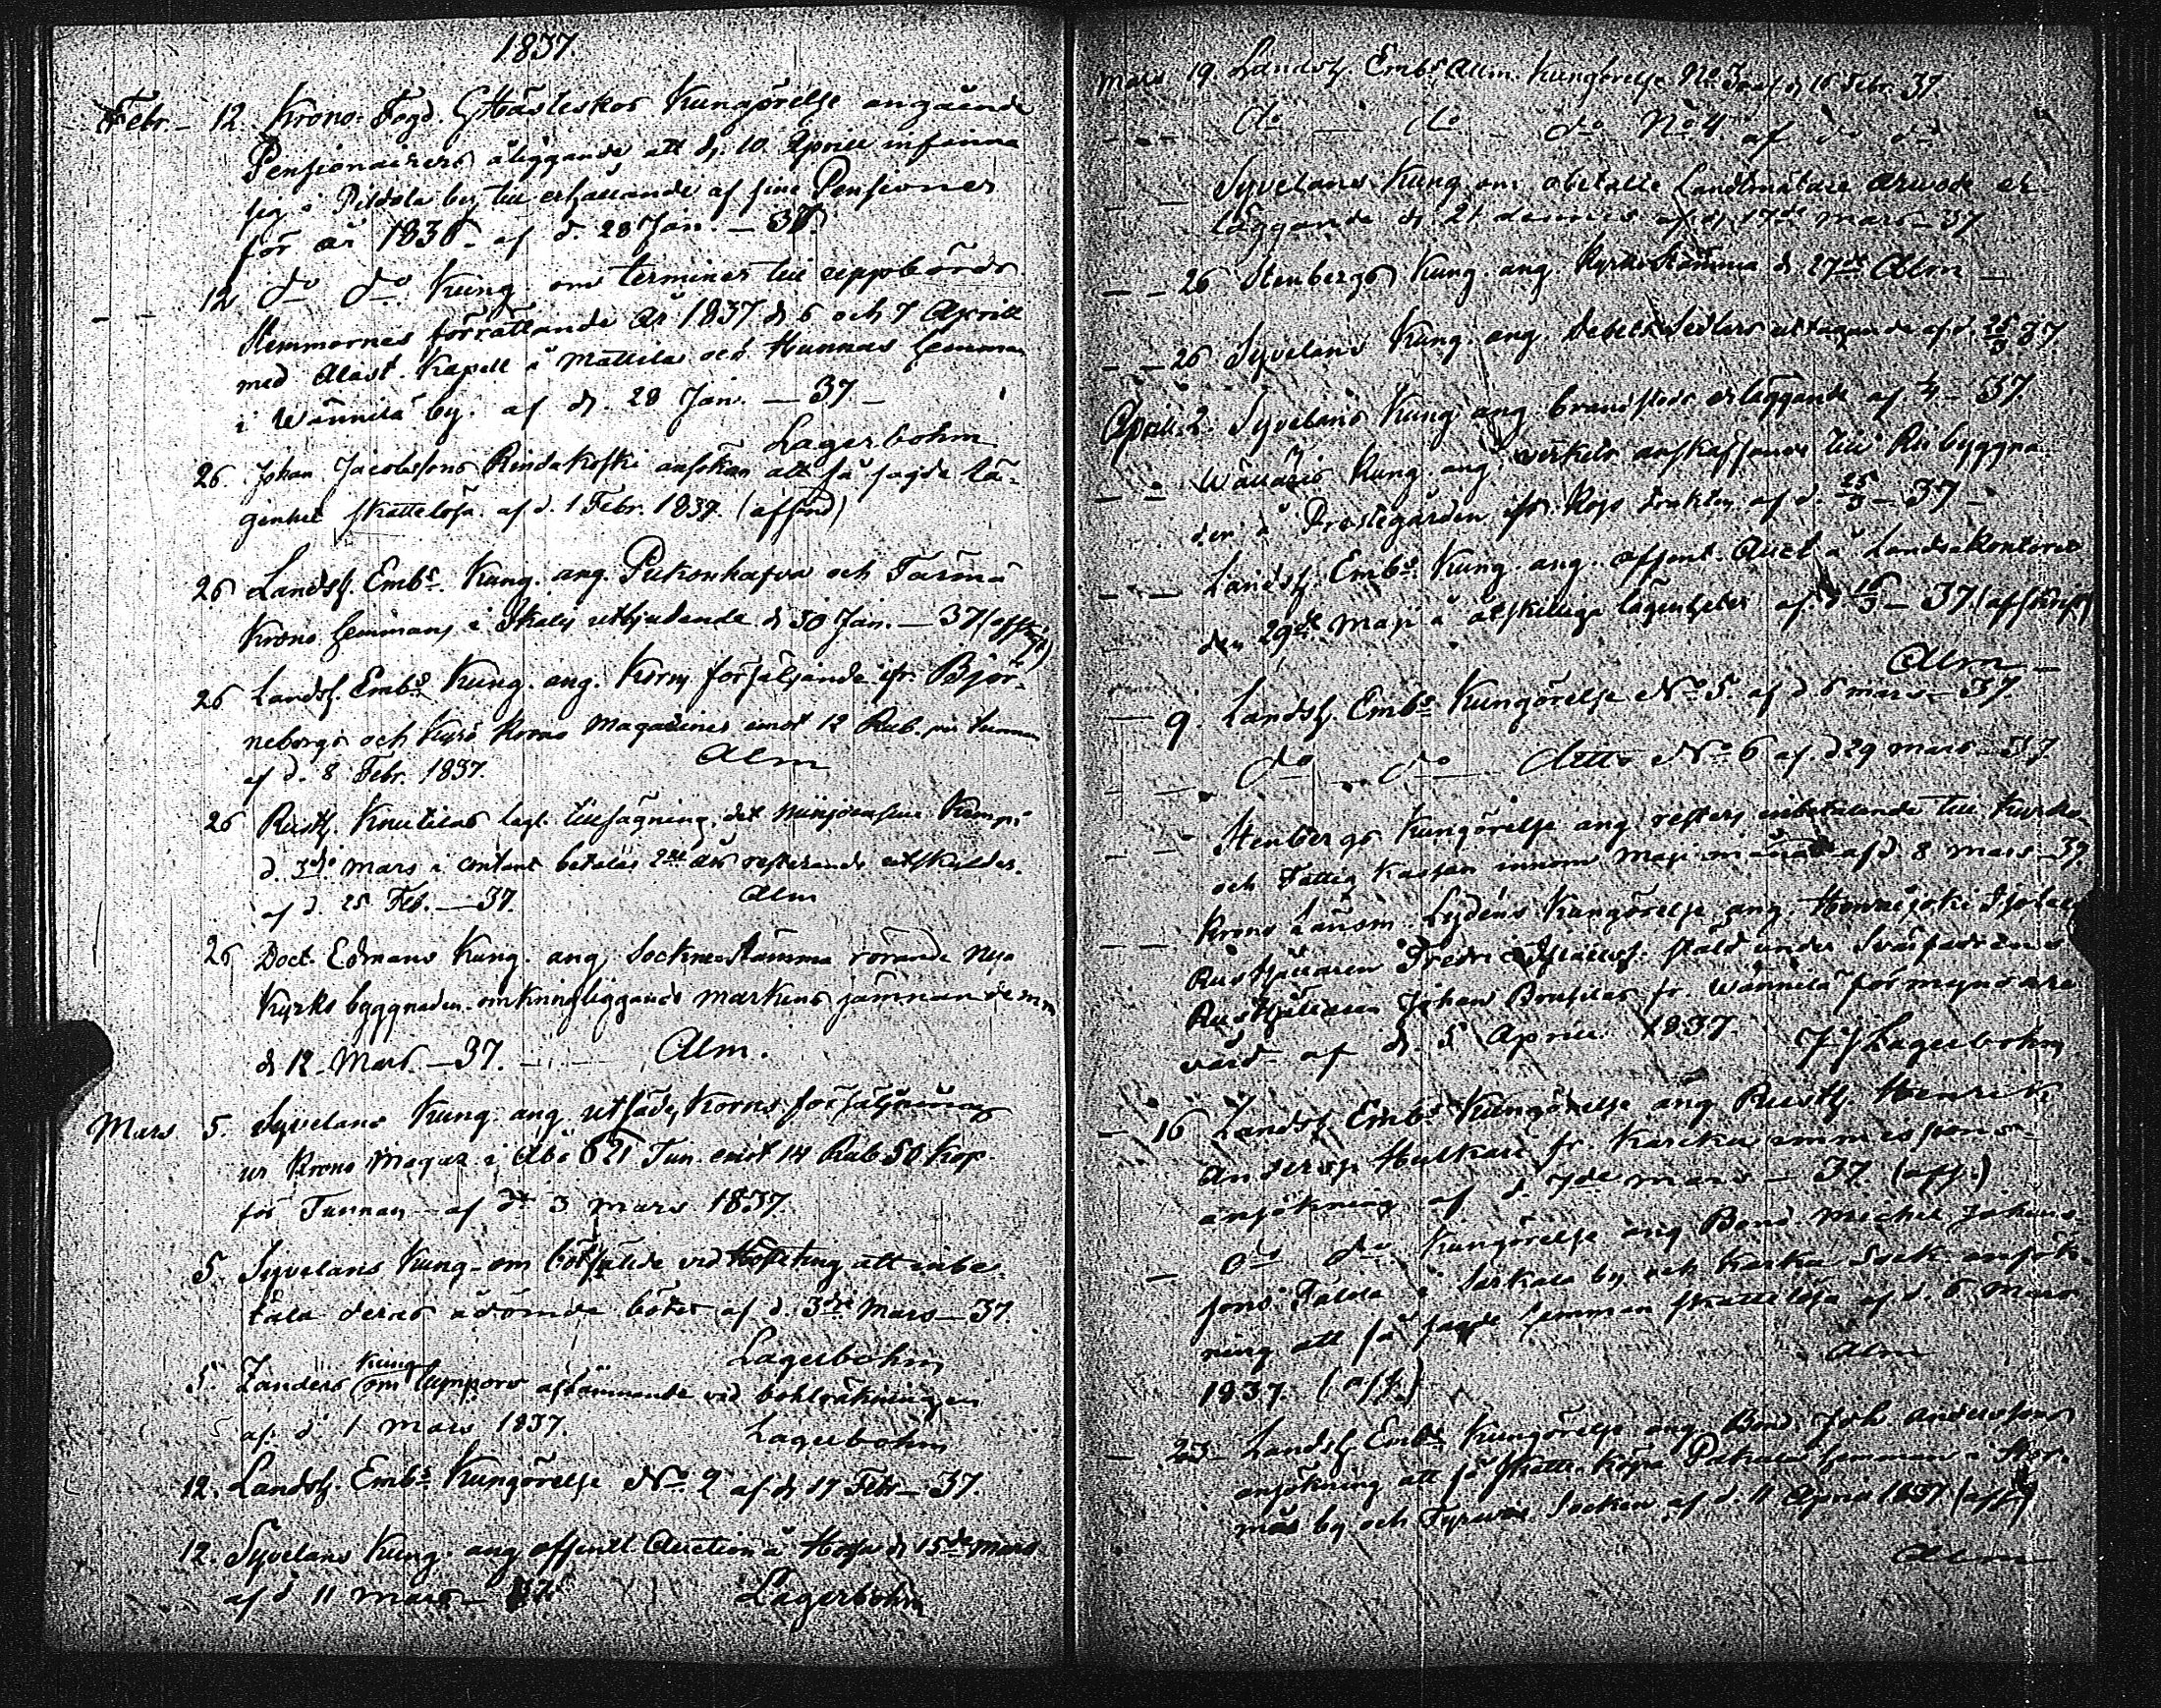 1837.
Febr. - 12. Krono Fogd. G. Hästeskos Kungörelse angående
Pensionairers åliggande att d. 10 Aprill infinna
sig i Pildola by till erhållande af sine Pensioner
för år 1836 af d. 28 Jan. - 37.
- - 12 do do Kung. om terminer till uppbörds
stemmornes förrättande År 1837 d. 6 och 7 Aprill
med Alast. Kapell å Mattila och Hunnas hemman
i Wännilä by. af d. 28 Jan. - 37 -
Lagerbohm
26. Johan Jacobssons Rindakoski ansökan att få sagde lä-
genhet skattelösa. af d. 1 Febr. 1837. (affärd)
26 Landsh. Embs. Kung. ang. Pukonhafva och Tarmä
Krono hemmans i utbjudande d. 30 Jan. - 37
26 Landsh. Embs Kung. ang. Korns försäljande ifr. Björ-
neborgs och Kyrö Krono Magaziner emot 12 Rub. pr tunna
af d. 8 Febr. 1837. Alm
26 Rusth. Knutilas lagl. tillsägning det
d. 3dje Mars i contant betala 2ne års resterande utskylder.
af d. 25 Feb. - 37. Alm
26 Doct. Edmans Kung. ang. Sockne stämma rörande Nya
Kyrko byggnaden omkringliggande markens jämnande m.m.
d. 12. Mars. - 37. - Alm.
Mars 5. Syvelans Kung. ang. utsädes Korns försäljning
ur Krono Magaz. i Åbo 621 Tun. emot 14 Rub 50 Kop.
för Tunnan - af d. 3 Mars 1837.
5. Syvelans Kung. om bötfälde vid Höstting att inbe-
tala deras ådömde böter af d. 3dje Mars - 37.
Lagerbohm
5. Zanders Kung. om lumpors aflämnande vid bohlräkningen
af d. 1 Mars 1837. Lagerbohm
12. Landsh. Embs Kungörelse No 2 af d. 17 Febr - 37.
12. Syvelans Kung. ang. offentl. Auction å d. 15de Mars
af d. 11 Mars - 37. Lagerbohm
Mars 19. Landsh. Embs Allm. Kungörelse No 3 af d. 16 Febr. 37
- - do - do - do No 4 af do do
- - Syvelans Kung. om obetalte Landtmätare arwode er-
läggande d. 21 dennes af d. 17de Mars - 37
- - 26 Stenbergs Kung. ang. Kyrko stämma d. 27de Alm -
- - 26 Syvelans Kung. ang. Debets Sedlars uttagande af d. 25/3 37.
Aprill. 2. Syvelans Kung. ang. brandstods erläggande af - 37.
- - Kung. ang. virkets anskaffande till Ribyggna-
den å Prestegården ifr. Röjs trakten af d. 25/3 - 37 -
- - Landsh. Embs Kung. ang. offent. Auct. å Landskontoret
den 29de Maji å åtskillige lägenheter af d. 16/3 - 37 (afskrift)
Alm -
- 9. Landsh. Embs Kungörelse No 5. af d. 6 Mars - 37
- - do - do - ditto No 6 af d. 29 Mars - 37.
- - Stenbergs Kungörelse ang. resters inbetalande till Kyrko
och Fattig Kassan innom Maji månad af d. 8 Mars - 37.
- - Krono Länsm. Lydéns Kungörelse ang.
Rusthållaren Fredric ställd under Svärfadrens
Rusthållaren Johan fr. Wännilä förmyndare
vård af d. 5 Aprill 1837. Lagerbohm
- 16 Landsh. Embs Kungörelse ang. Rusth. Henrik
Anderss. Hulkari fr. Karcku immissions
ansökning af d. 7de Mars - 37. (aff.)
- do do Kungörelse ang. Bond. Michel Johans-
sons i Sarkala by och Karku Sock. ansök-
ning att få sagde hemman skattelösa af d. 6 Mars
1837. (aff.) Alm
- 23 Landsh. Embs Kungörelse ang. Bond. Joh. Anderssons
ansökning att få skatte köpa Pakala hemman i Stor-
mis by och Tyrwis Socken af d. 11 April 1837 (aff.)
Alm